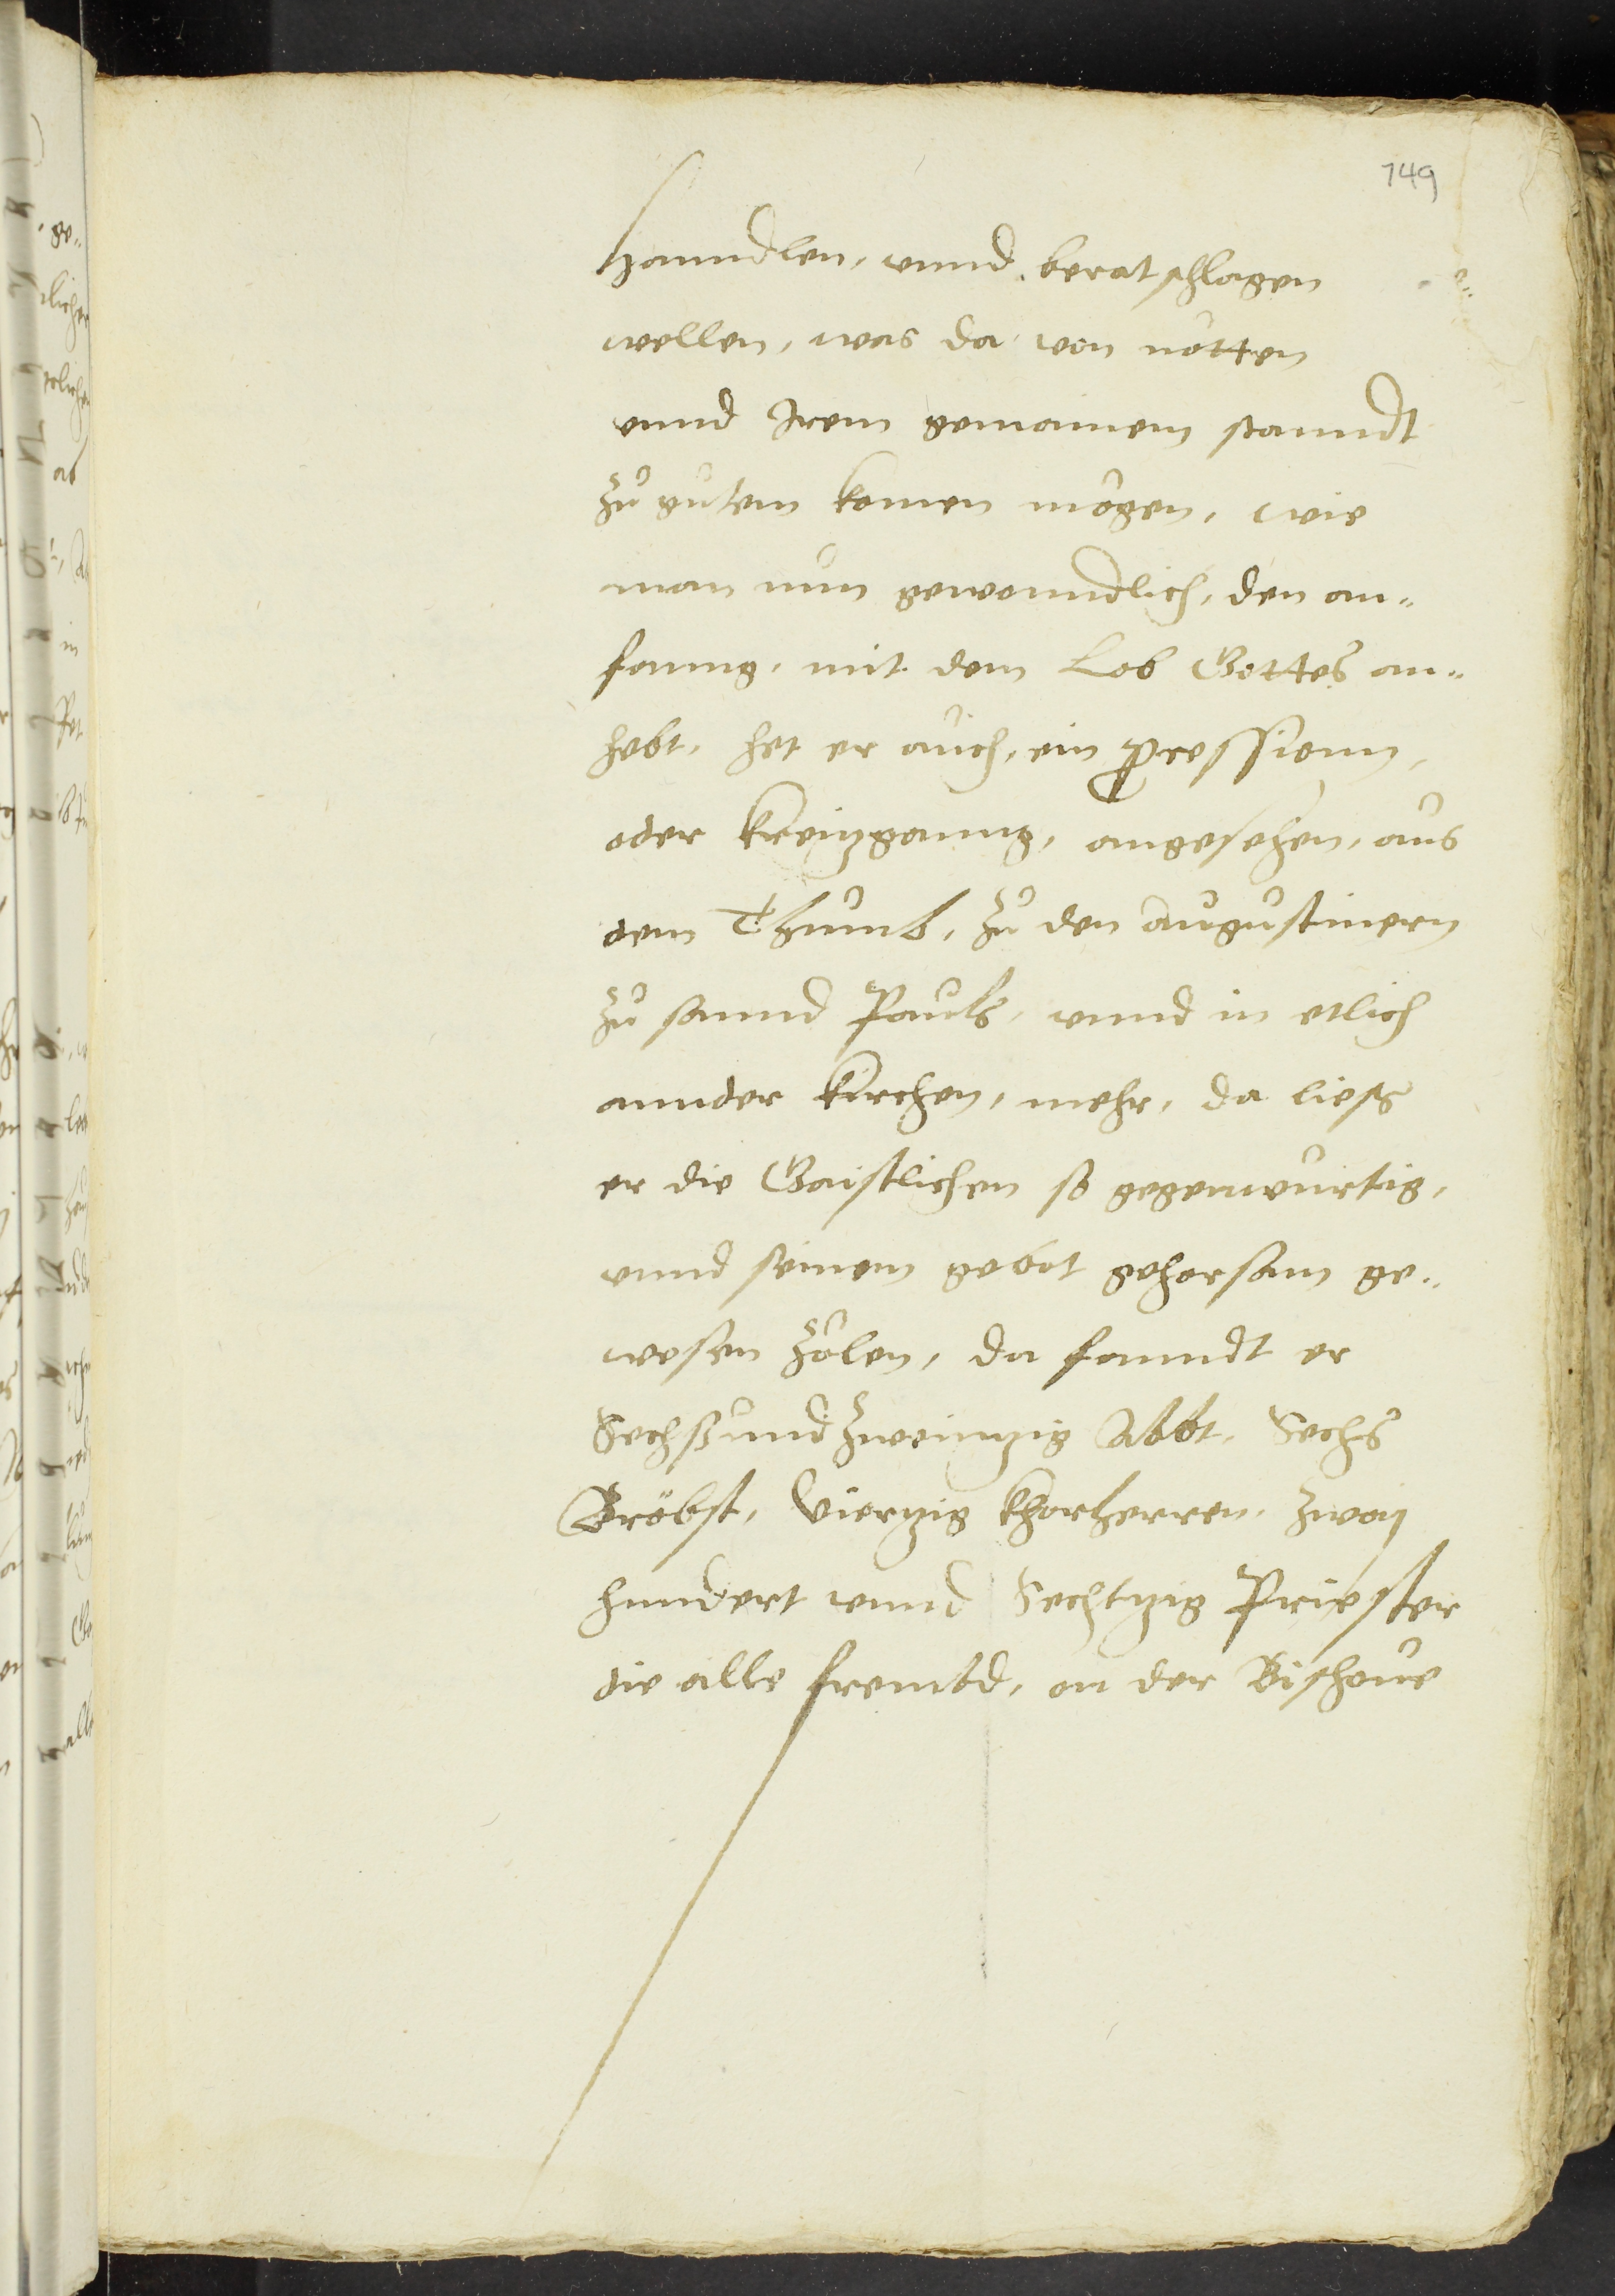 749
hanndlen, vnnd beratschlagen
wellen, was da von nötten
vnnd Irem gemainem stanndt
zu gutem komen mögen, wie
man nun gewonndlich, den an¬
fanng, mit dem Lob Gottes an¬
hebt, het er auch, ein Pressionn,
oder kreizganng, angesehen, aus
dem Thumb, zu den Augustinern
zu sannd Pauls, vnnd in etlich
annder kirchen, mehr, da liess
er die Gaistlichen so gegenwurtig,
vnnd seinem gebot gehorsam ge¬
wesen zölen, da fanndt er
Sechsundzweintzig Abbt, Sechs
Bröbst, Viertzig khorherren, zway
hundert vnnd Sechtzig Priester
die alle frembd, on der Bischoue